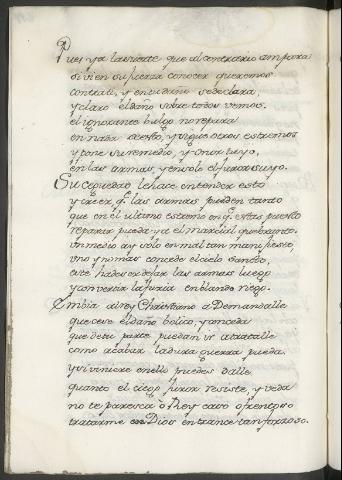 Pues ya la suerte que al contrario ampara
si vien su fuerza conocer queremos
contra ti, y en tu daño se declara,
y claro el daño sobre todos vemos.
el ignorante bulgo no repara
en nada de esto, y sigue otros estremos
y pone su remedio, y honor tuyo,
en las armas, y en solo el furor suyo.
Su ceguedad le hace entender esto
y creer, q.e las armas pueden tanto
que en el ultimo estremo en q.e estas puesto
reparar pueda ya el marcial quebranto.
un medio ay solo en mal tan manifiesto,
uno y no mas concede el cielo santo,
este has de dejar las armas luego
y convertir la furia en blando ruego.
Embia al rey Christiano a Demandalle
que cese el daño belico, y conceda
que de tu parte puedan ir a tratalle
como acabar la dura guerra pueda.
y si viniere en ello puedes dalle
quanto el ciego furor resiste, y veda
no te paresca o Rey caso afrentoso
tratarme en Dios en trance tan forzoso.